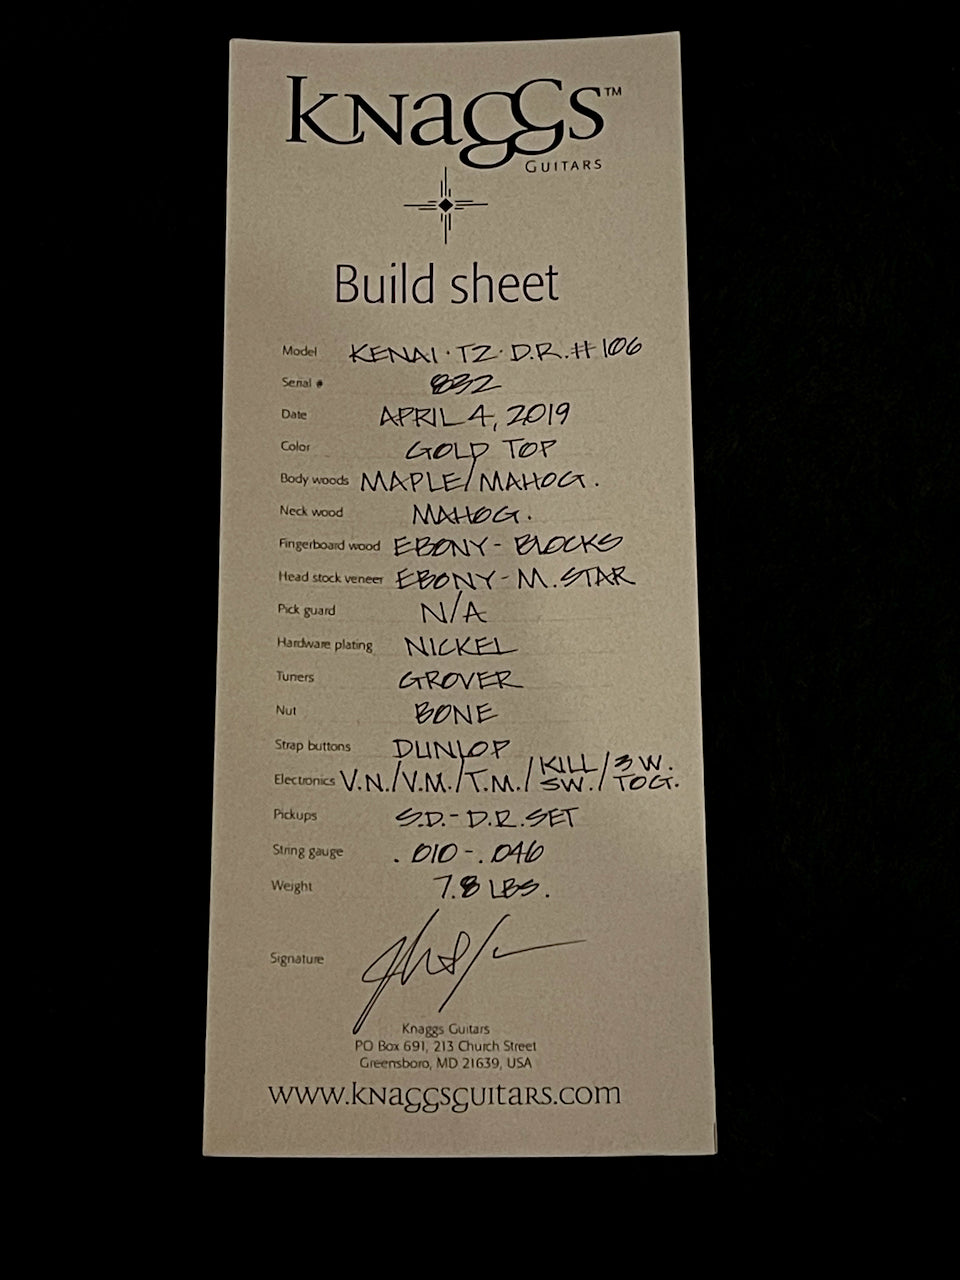 KNaGGS™
GUITARS
Build sheet
Model KENAI · T2 · D.R. # 106
Serial # 832
Date APRIL 4, 2019
Color GOLD TOP
Body woods MAPLE/MAHOG.
Neck wood MAHOG.
Fingerboard wood EBONY - BLOCKS
Head stock veneer EBONY - M. STAR
Pick guard N/A
Hardware plating NICKEL
Tuners GROVER
Nut BONE
Strap buttons DUNLOP
Electronics V.N./V.M./T.M./KILL SW./3 W. TOG.
Pickups S.D. - D.R. SET
String gauge .010 - .046
Weight 7.8 LBS.
Signature
Knaggs Guitars
PO Box 691, 213 Church Street
Greensboro, MD 21639, USA
www.knaggsguitars.com